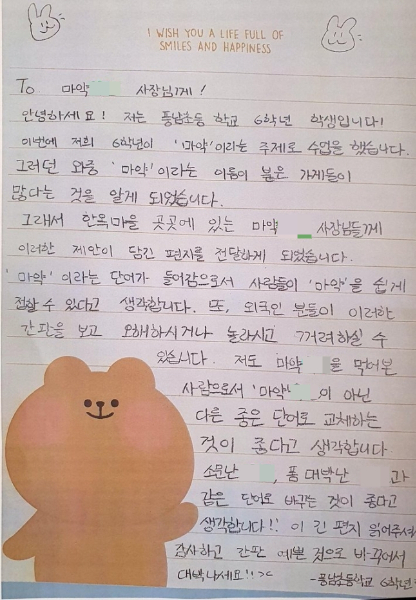 I WISH YOU A LIFE FULL OF
SMILES AND HAPPINESS
To 마약 사장님께!
안녕하세요! 저는 풍남초등 학교 6학년 학생입니다!
이번에 저희 6학년이 '마약'이라는 주제로 수업을 했습니다.
그러던 와중 '마약'이라는 이름이 붙은 가게들이
많다는 것을 알게 되었습니다.
그래서 한옥마을 곳곳에 있는 마약 사장님들께
이러한 제안이 담긴 편지를 전달하게 되었습니다.
'마약'이라는 단어가 들어감으로서 사람들이 '마약'을 쉽게
접할 수 있다고 생각합니다. 또, 외국인 분들이 이러한
간판을 보고 오해하시거나 놀라시고 꺼려하실 수
있습니다. 저도 마약 을 먹어본
사람으로서 '마약 '이 아닌
다른 좋은 단어로 교체하는
것이 좋다고 생각합니다
소문난 , 품 대박난 과
같은 단어로 바꾸는 것이 좋다고
생각합니다!! 이 긴 편지 읽어주셔서
감사하고 간판 예쁜 것으로 바꾸어서
대박나세요!! ><
-풍남초등학교 6학년